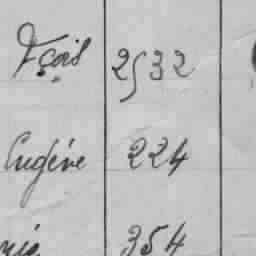 Fçois 2532
Eugène 224
354